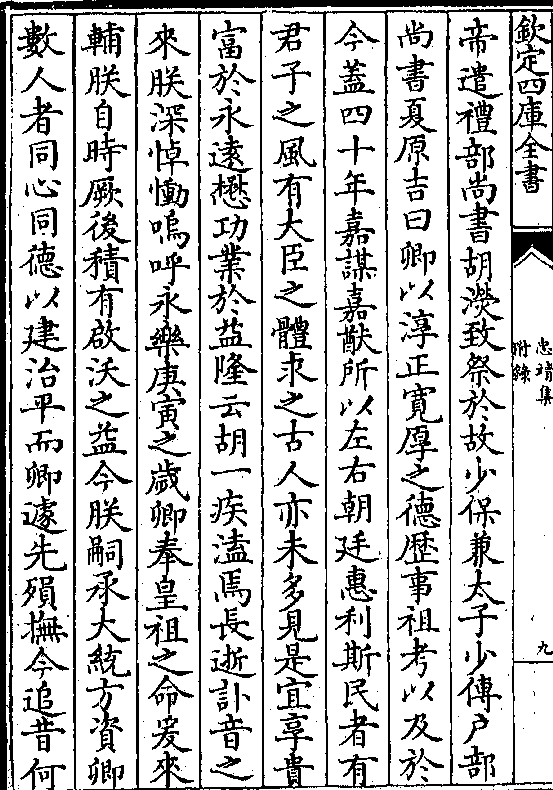 欽定四庫全書
忠靖集
附錄
九
帝遣禮部尚書胡濙致祭於故少保兼太子少傅户部
尚書夏原吉曰卿以淳正寬厚之德歷事祖考以及於
今葢四十年嘉謀嘉猷所以左右朝廷惠利斯民者有
君子之風有大臣之體求之古人亦未多見是宜享貴
富於永遠懋功業於益隆云胡一疾溘焉長逝訃音之
來朕深悼慟嗚呼永樂庚寅之歲卿奉皇祖之命爰來
輔朕自時厥後積有啟沃之益今朕嗣承大統方資卿
數人者同心同德以建治平而卿遽先殞撫今追昔何